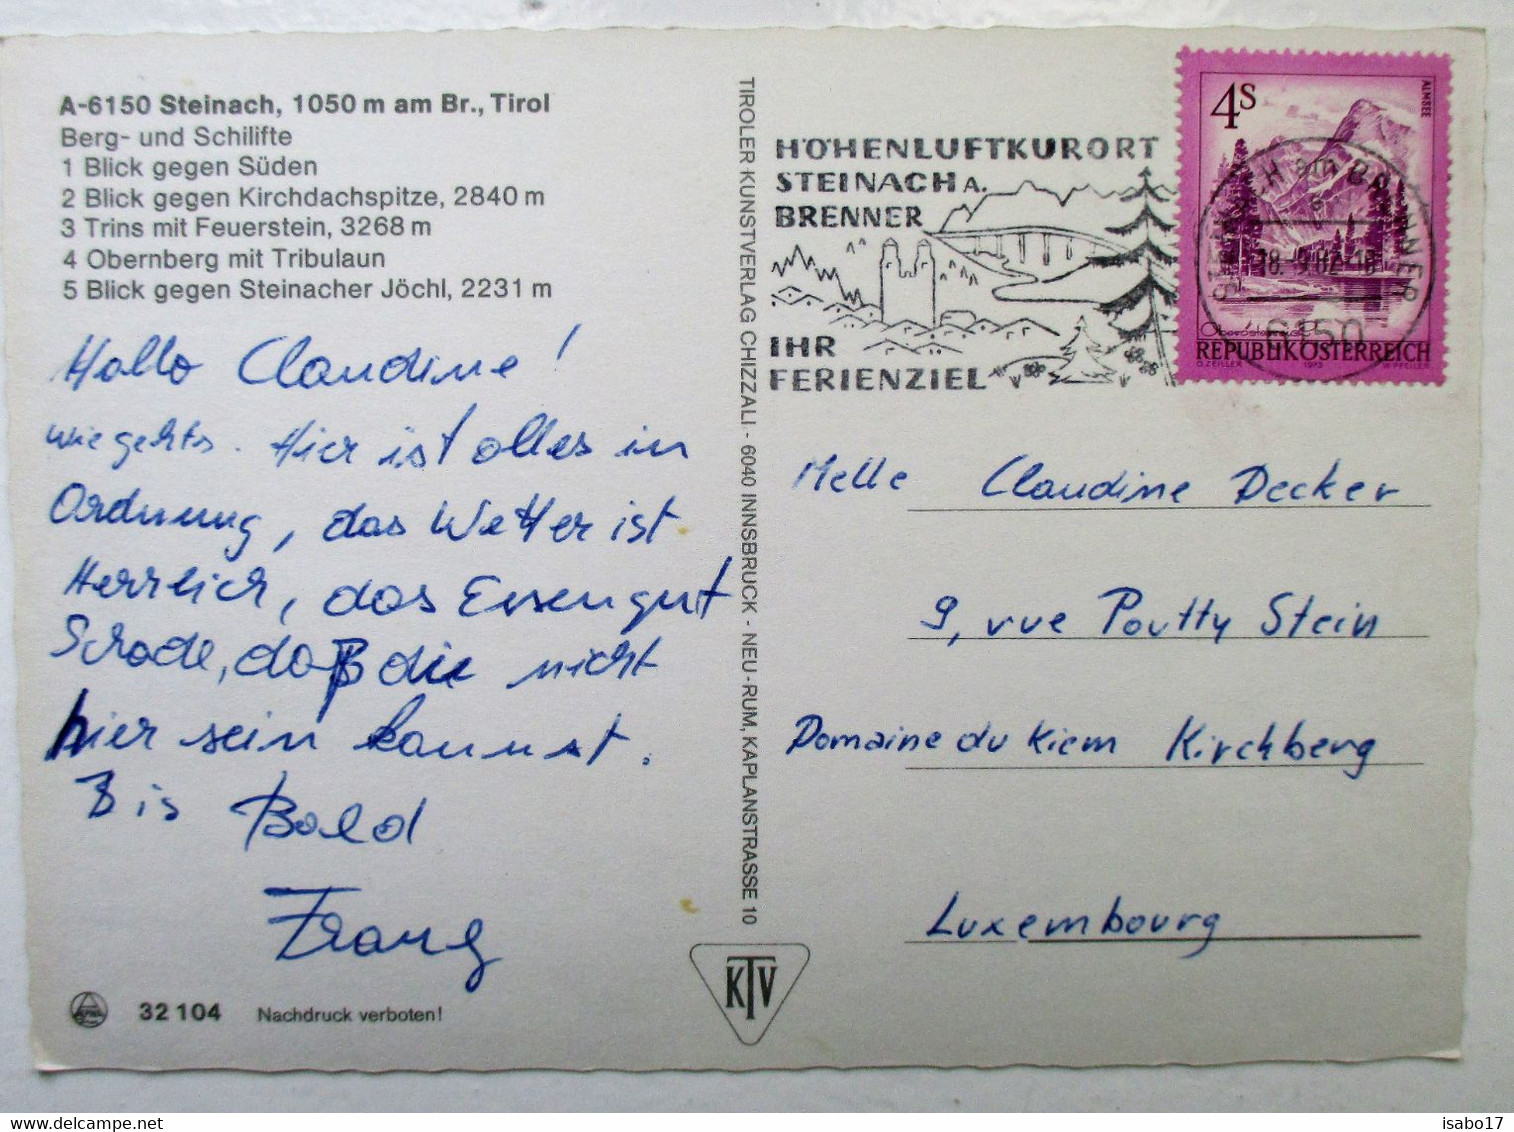 A-6150 Steinach, 1050 m am Br., Tirol
Berg- und Schilifte
1 Blick gegen Süden
2 Blick gegen Kirchdachspitze, 2840 m
3 Trins mit Feuerstein, 3268 m
4 Obernberg mit Tribulaun
5 Blick gegen Steinacher Jöchl, 2231 m
Hallo Claudine!
wie gehts. Hier ist alles in
Ordnung, das Wetter ist
Herrlich, das Essen gut
Schade, daß du nicht
hier sein kannst.
Bis Bald
32 104 Nachdruck verboten!
TIROLER KUNSTVERLAG CHIZZALI - 6040 INNSBRUCK - NEU-RUM, KAPLANSTRASSE 10
KTV
HÖHENLUFTKURORT
STEINACH A.
BRENNER
IHR
FERIENZIEL
4S
ALMSEE
STEINACH am BRENNER
18.-9.82-18
6150
Oberösterreich
REPUBLIK ÖSTERREICH
O. ZEILLER 1973 W. PFEILER
Melle Claudine Decker
9, rue Poutty Stein
Domaine du Kiem Kirchberg
Luxembourg
isabo17